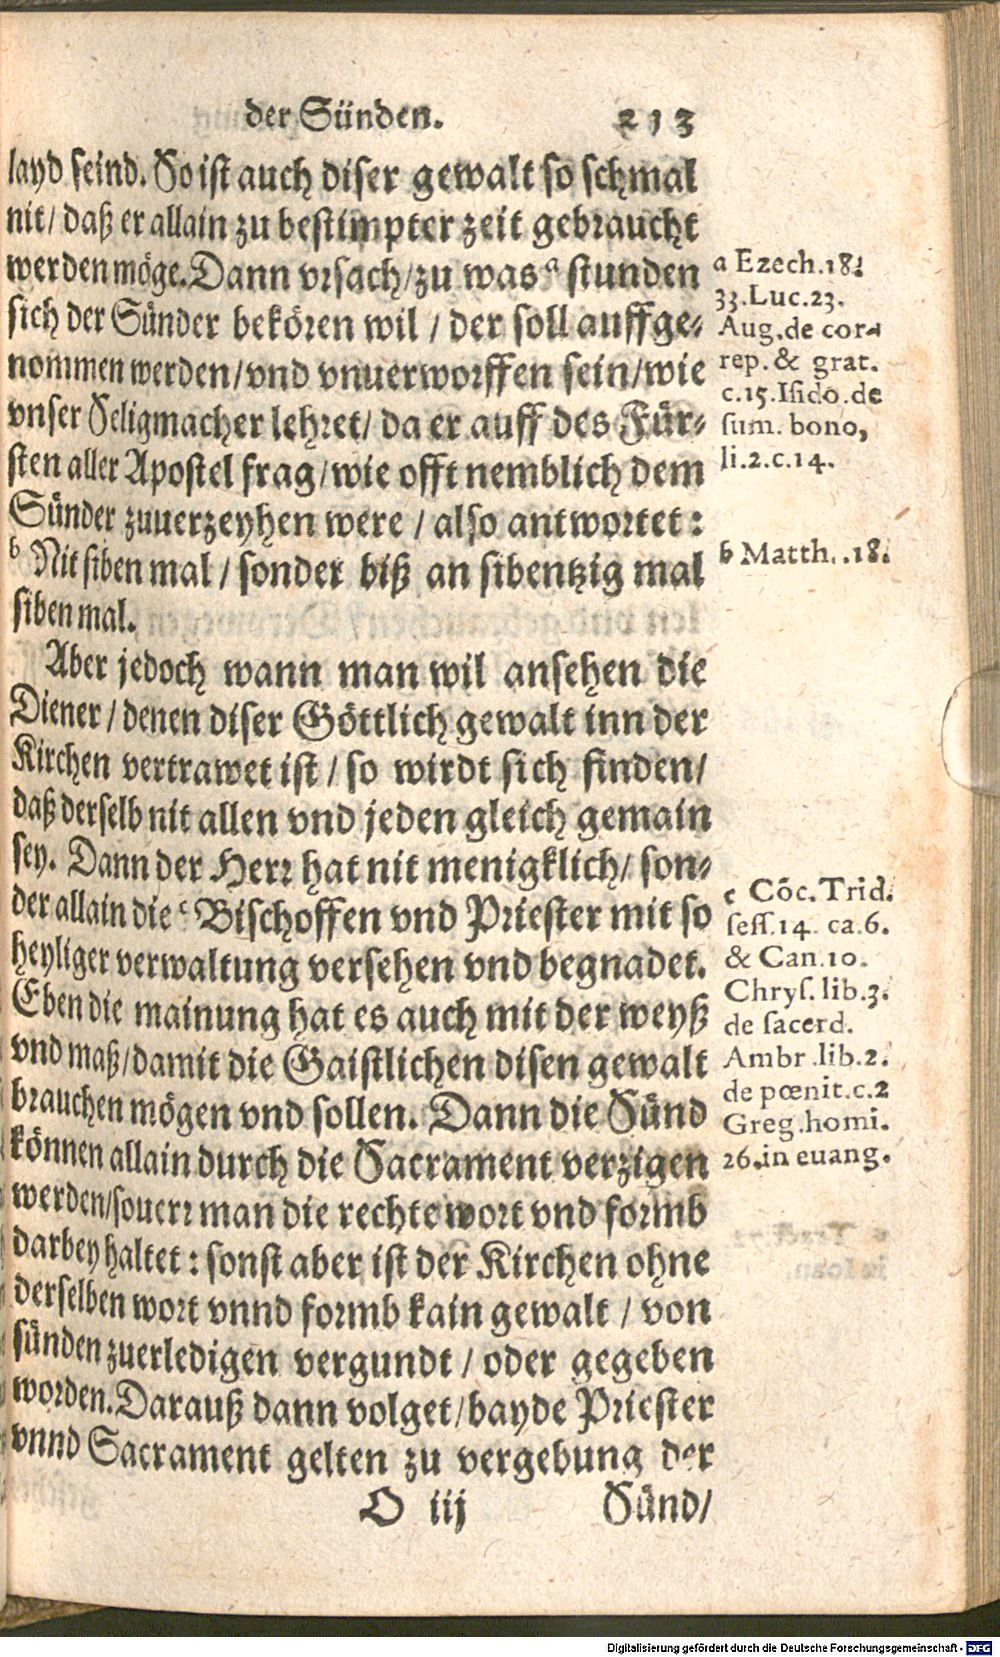 der Sünden. 213
layd seind. So ist auch diser gewalt so schmal
nit / daß er allain zu bestimpter zeit gebraucht
werden möge. Dann vrsach / zu was a stunden
sich der Sünder bekören wil / der soll auffge-
nommen werden / vnd vnuerworffen sein / wie
vnser Seligmacher lehret / da er auff des Für-
sten aller Apostel frag / wie offt nemblich dem
Sünder zuuerzeyhen were / also antwortet:
b Nit siben mal / sonder biß an sibentzig mal
siben mal.
Aber jedoch wann man wil ansehen die
Diener / denen diser Göttlich gewalt inn der
Kirchen vertrawet ist / so wirdt sich finden /
daß derselb nit allen vnd jeden gleich gemain
sey. Dann der Herr hat nit menigklich / son-
der allain die c Bischoffen vnd Priester mit so
heyliger verwaltung versehen vnd begnadet.
Eben die mainung hat es auch mit der weyß
vnd maß / damit die Gaistlichen disen gewalt
brauchen mögen vnd sollen. Dann die Sünd
können allain durch die Sacrament verzigen
werden / souerr man die rechte wort vnd formb
darbey haltet: sonst aber ist der Kirchen ohne
derselben wort vnnd formb kain gewalt / von
sünden zuerledigen vergundt / oder gegeben
worden. Darauß dann volget / bayde Priester
vnnd Sacrament gelten zu vergebung der
O iij Sünd /
a Ezech. 18.
33. Luc. 23.
Aug. de cor-
rep. & grat.
c. 15. Isido. de
sum. bono,
li. 2. c. 14.
b Matth. 18.
c Cōc. Trid.
sess. 14. ca. 6.
& Can. 10.
Chrys. lib. 3.
de sacerd.
Ambr. lib. 2.
de pœnit. c. 2
Greg. homi.
26. in euang.
Digitalisierung gefördert durch die Deutsche Forschungsgemeinschaft - DFG